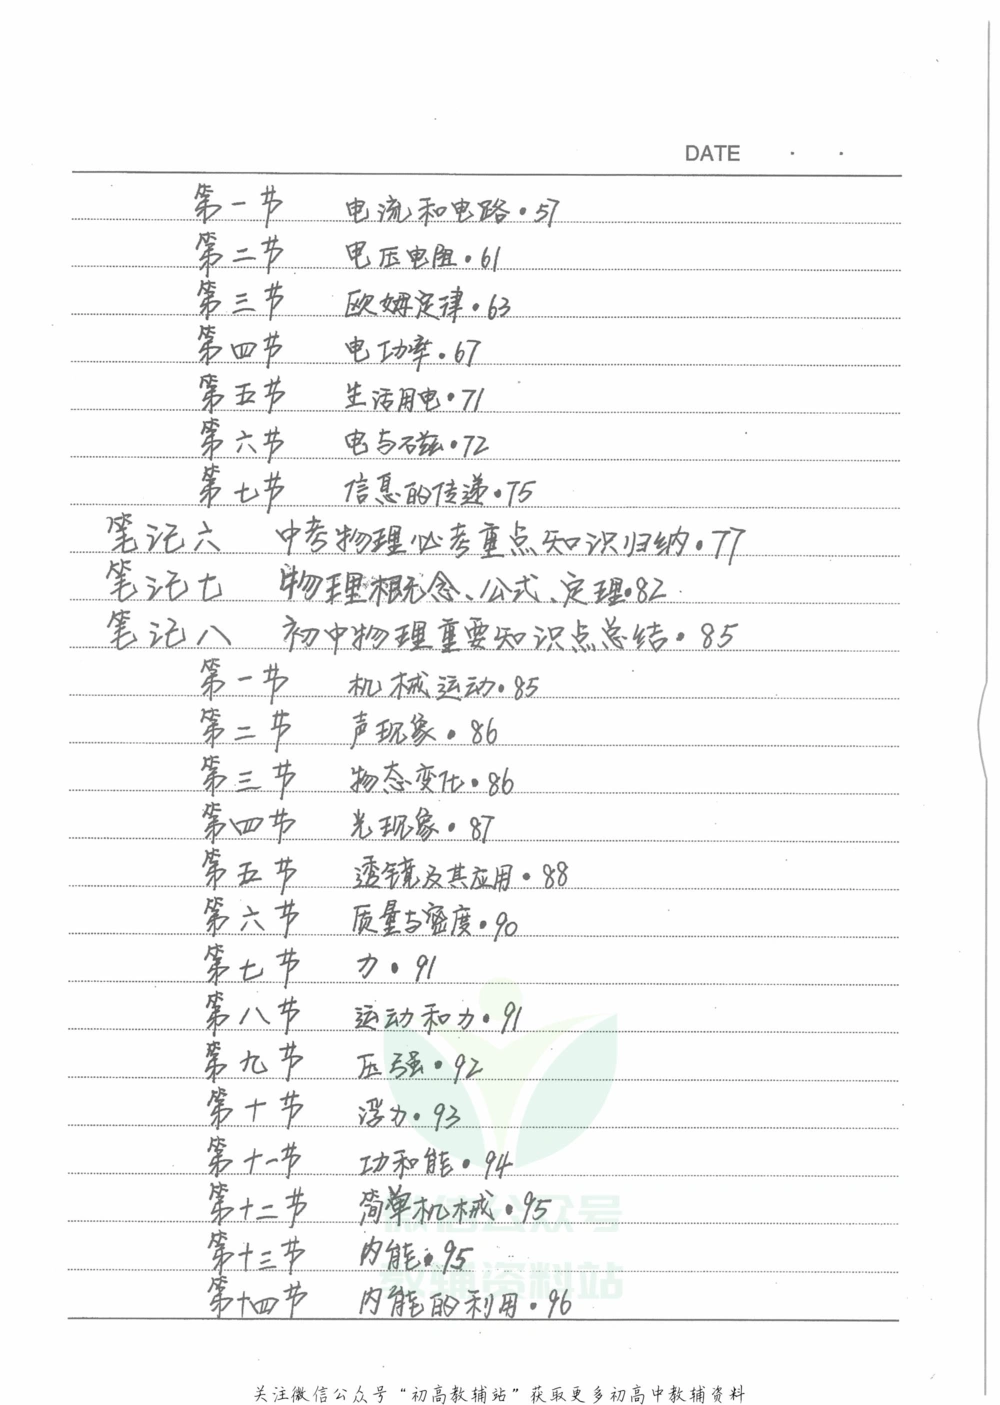 DATE · ·
第一节 电流和电路·57
第二节 电压电阻·61
第三节 欧姆定律·63
第四节 电功率·67
第五节 生活用电·71
第六节 电与磁·72
第七节 信息的传递·75
笔记六 中考物理必考重点知识归纳·77
笔记七 物理概念、公式、定理·82
笔记八 初中物理重要知识点总结·85
第一节 机械运动·85
第二节 声现象·86
第三节 物态变化·86
第四节 光现象·87
第五节 透镜及其应用·88
第六节 质量与密度·90
第七节 力·91
第八节 运动和力·91
第九节 压强·92
第十节 浮力·93
第十一节 功和能·94
第十二节 简单机械·95
第十三节 内能·95
第十四节 内能的利用·96
微信公众号
教辅资料站
关注微信公众号“初高教辅站”获取更多初高中教辅资料